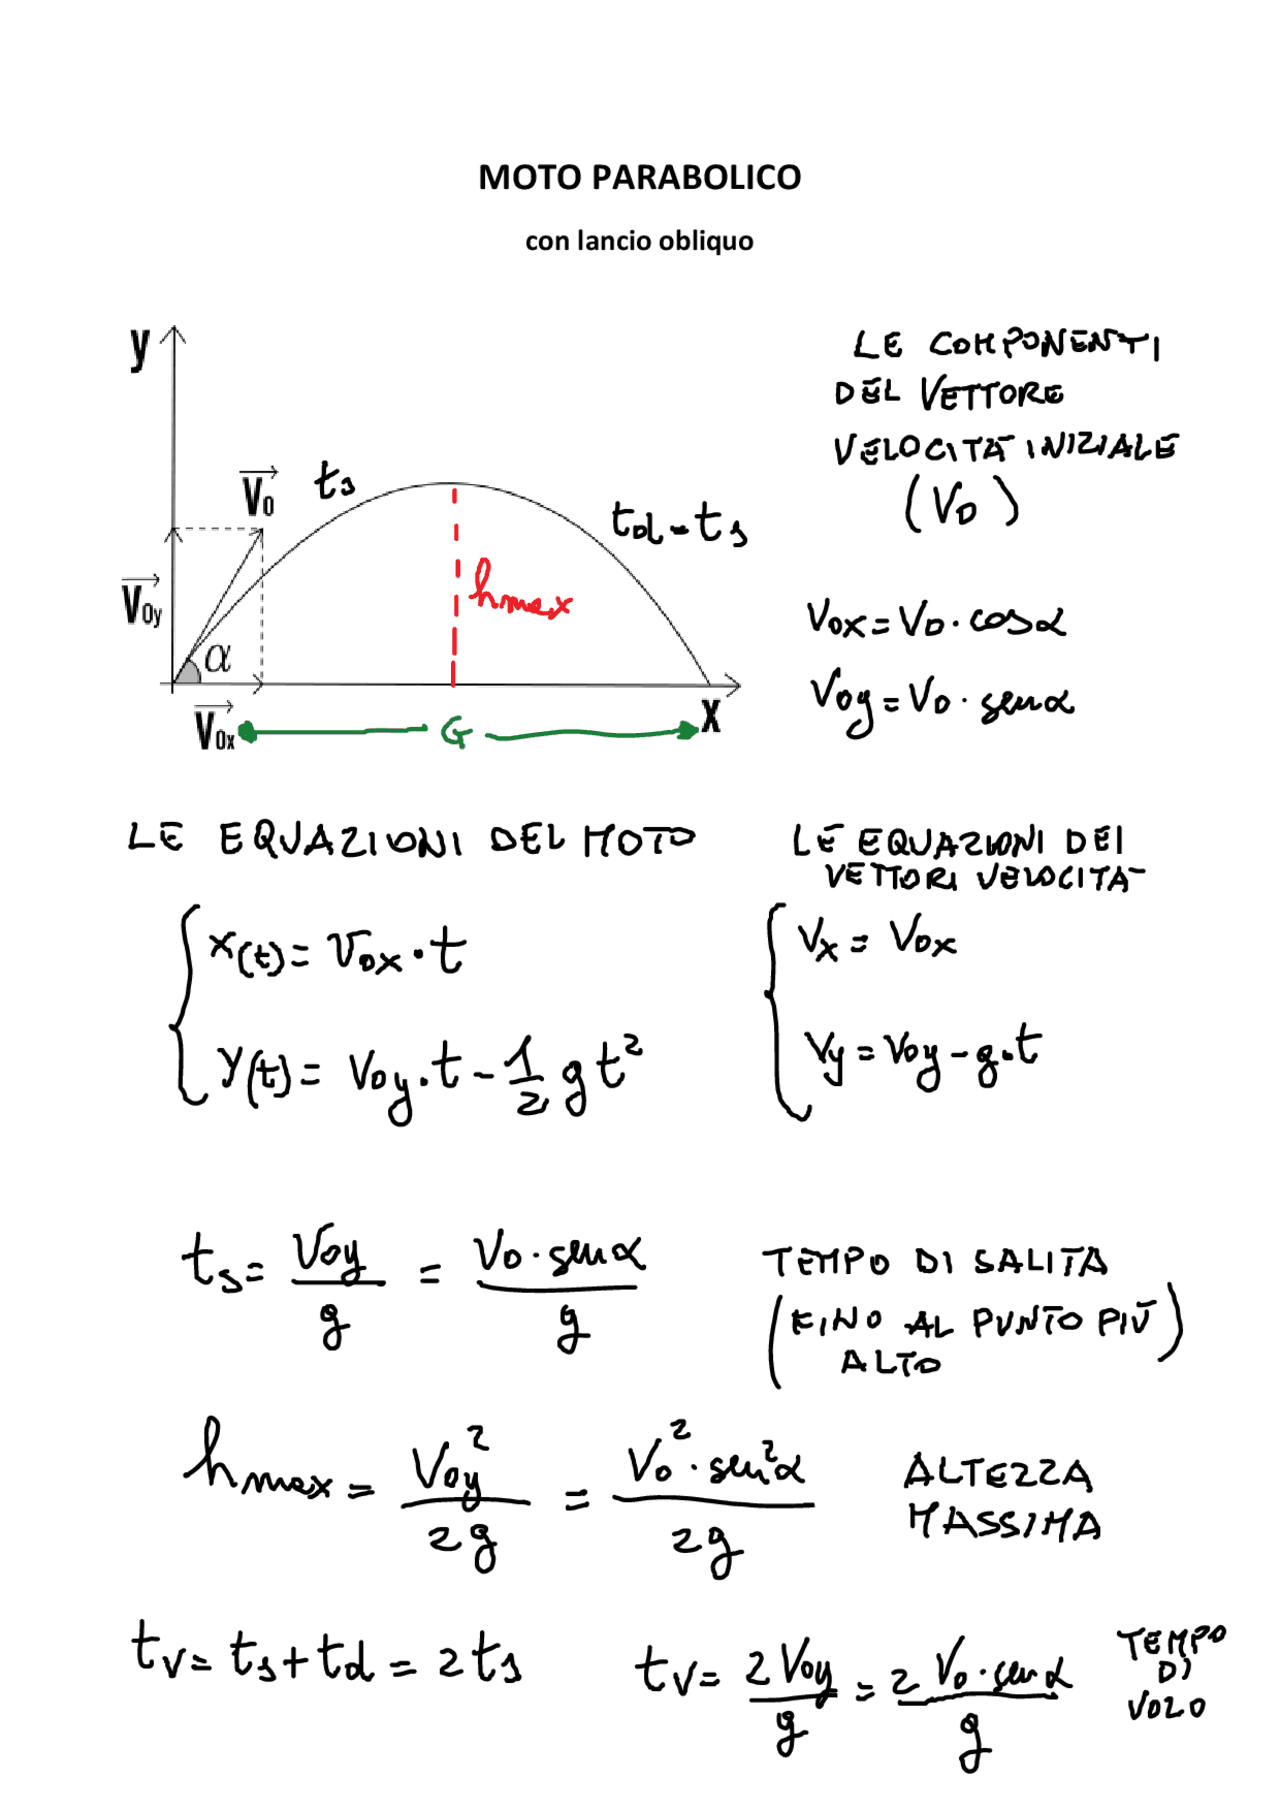 MOTO PARABOLICO
con lancio obliquo
y
V0
V0y
α
V0x
x
ts
td = ts
hmax
G
LE COMPONENTI
DEL VETTORE
VELOCITÀ INIZIALE
(V0)
V0x = V0 · cosα
V0y = V0 · senα
LE EQUAZIONI DEL MOTO
x(t) = V0x · t
y(t) = V0y · t - 1/2 g t²
LE EQUAZIONI DEI
VETTORI VELOCITÀ
Vx = V0x
Vy = V0y - g · t
ts = V0y/g = V0 · senα/g
TEMPO DI SALITA
(FINO AL PUNTO PIÙ
ALTO)
hmax = V0y²/2g = V0² · sen²α/2g
ALTEZZA
MASSIMA
tv = ts + td = 2ts
tv = 2V0y/g = 2 V0 · senα/g
TEMPO
DI
VOLO